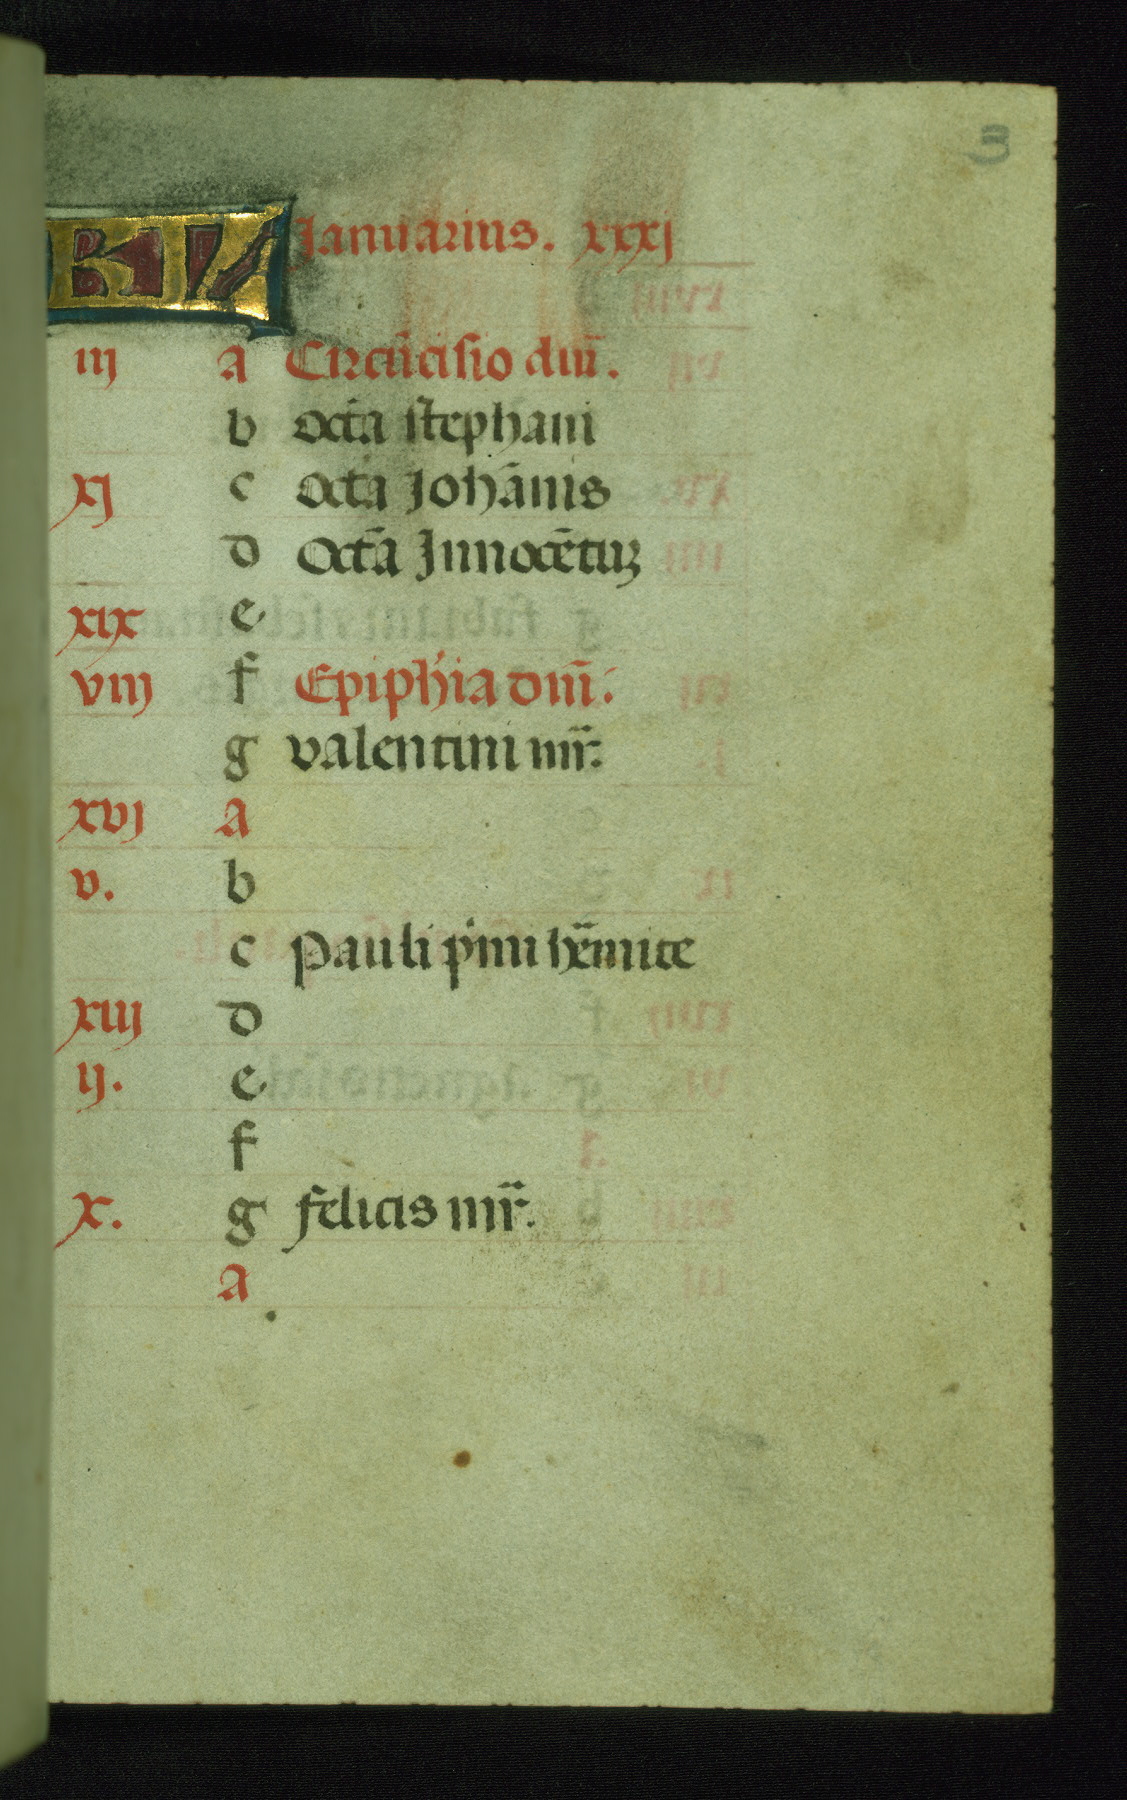 3
KL Januarius. xxxj
iij a Circūcisio dnī.
b octā stephani
xj c octā Johānis
d Octā Innocētiuꝫ
xix e
viij f Epiph'ia dnī.
g valentini mr̄.
xvj a
v. b
c Pauli p'mi hēmite
xiij d
ij. e
f
x. g felicis mr̄.
a